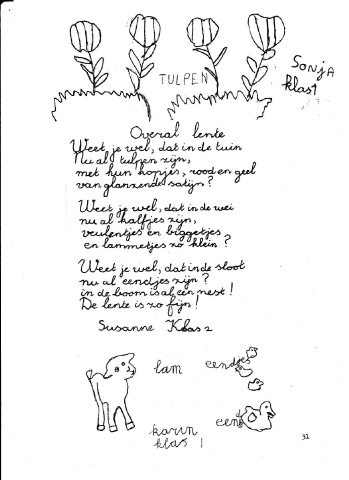 TULPEN
Sonja
klas 1
Overal lente
Weet je wel, dat in de tuin
Nu al tulpen zijn,
met hun kopjes, rood en geel
van glanzende satijn?
Weet je wel, dat in de wei
nu al kalfjes zijn,
veulentjes en biggetjes
en lammetjes zo klein?
Weet je wel, dat in de sloot
nu al eendjes zijn?
in de boom is al een nest!
De lente is zo fijn!
Susanne Klas 2
lam
eendjes
eend
karin
klas 1
31